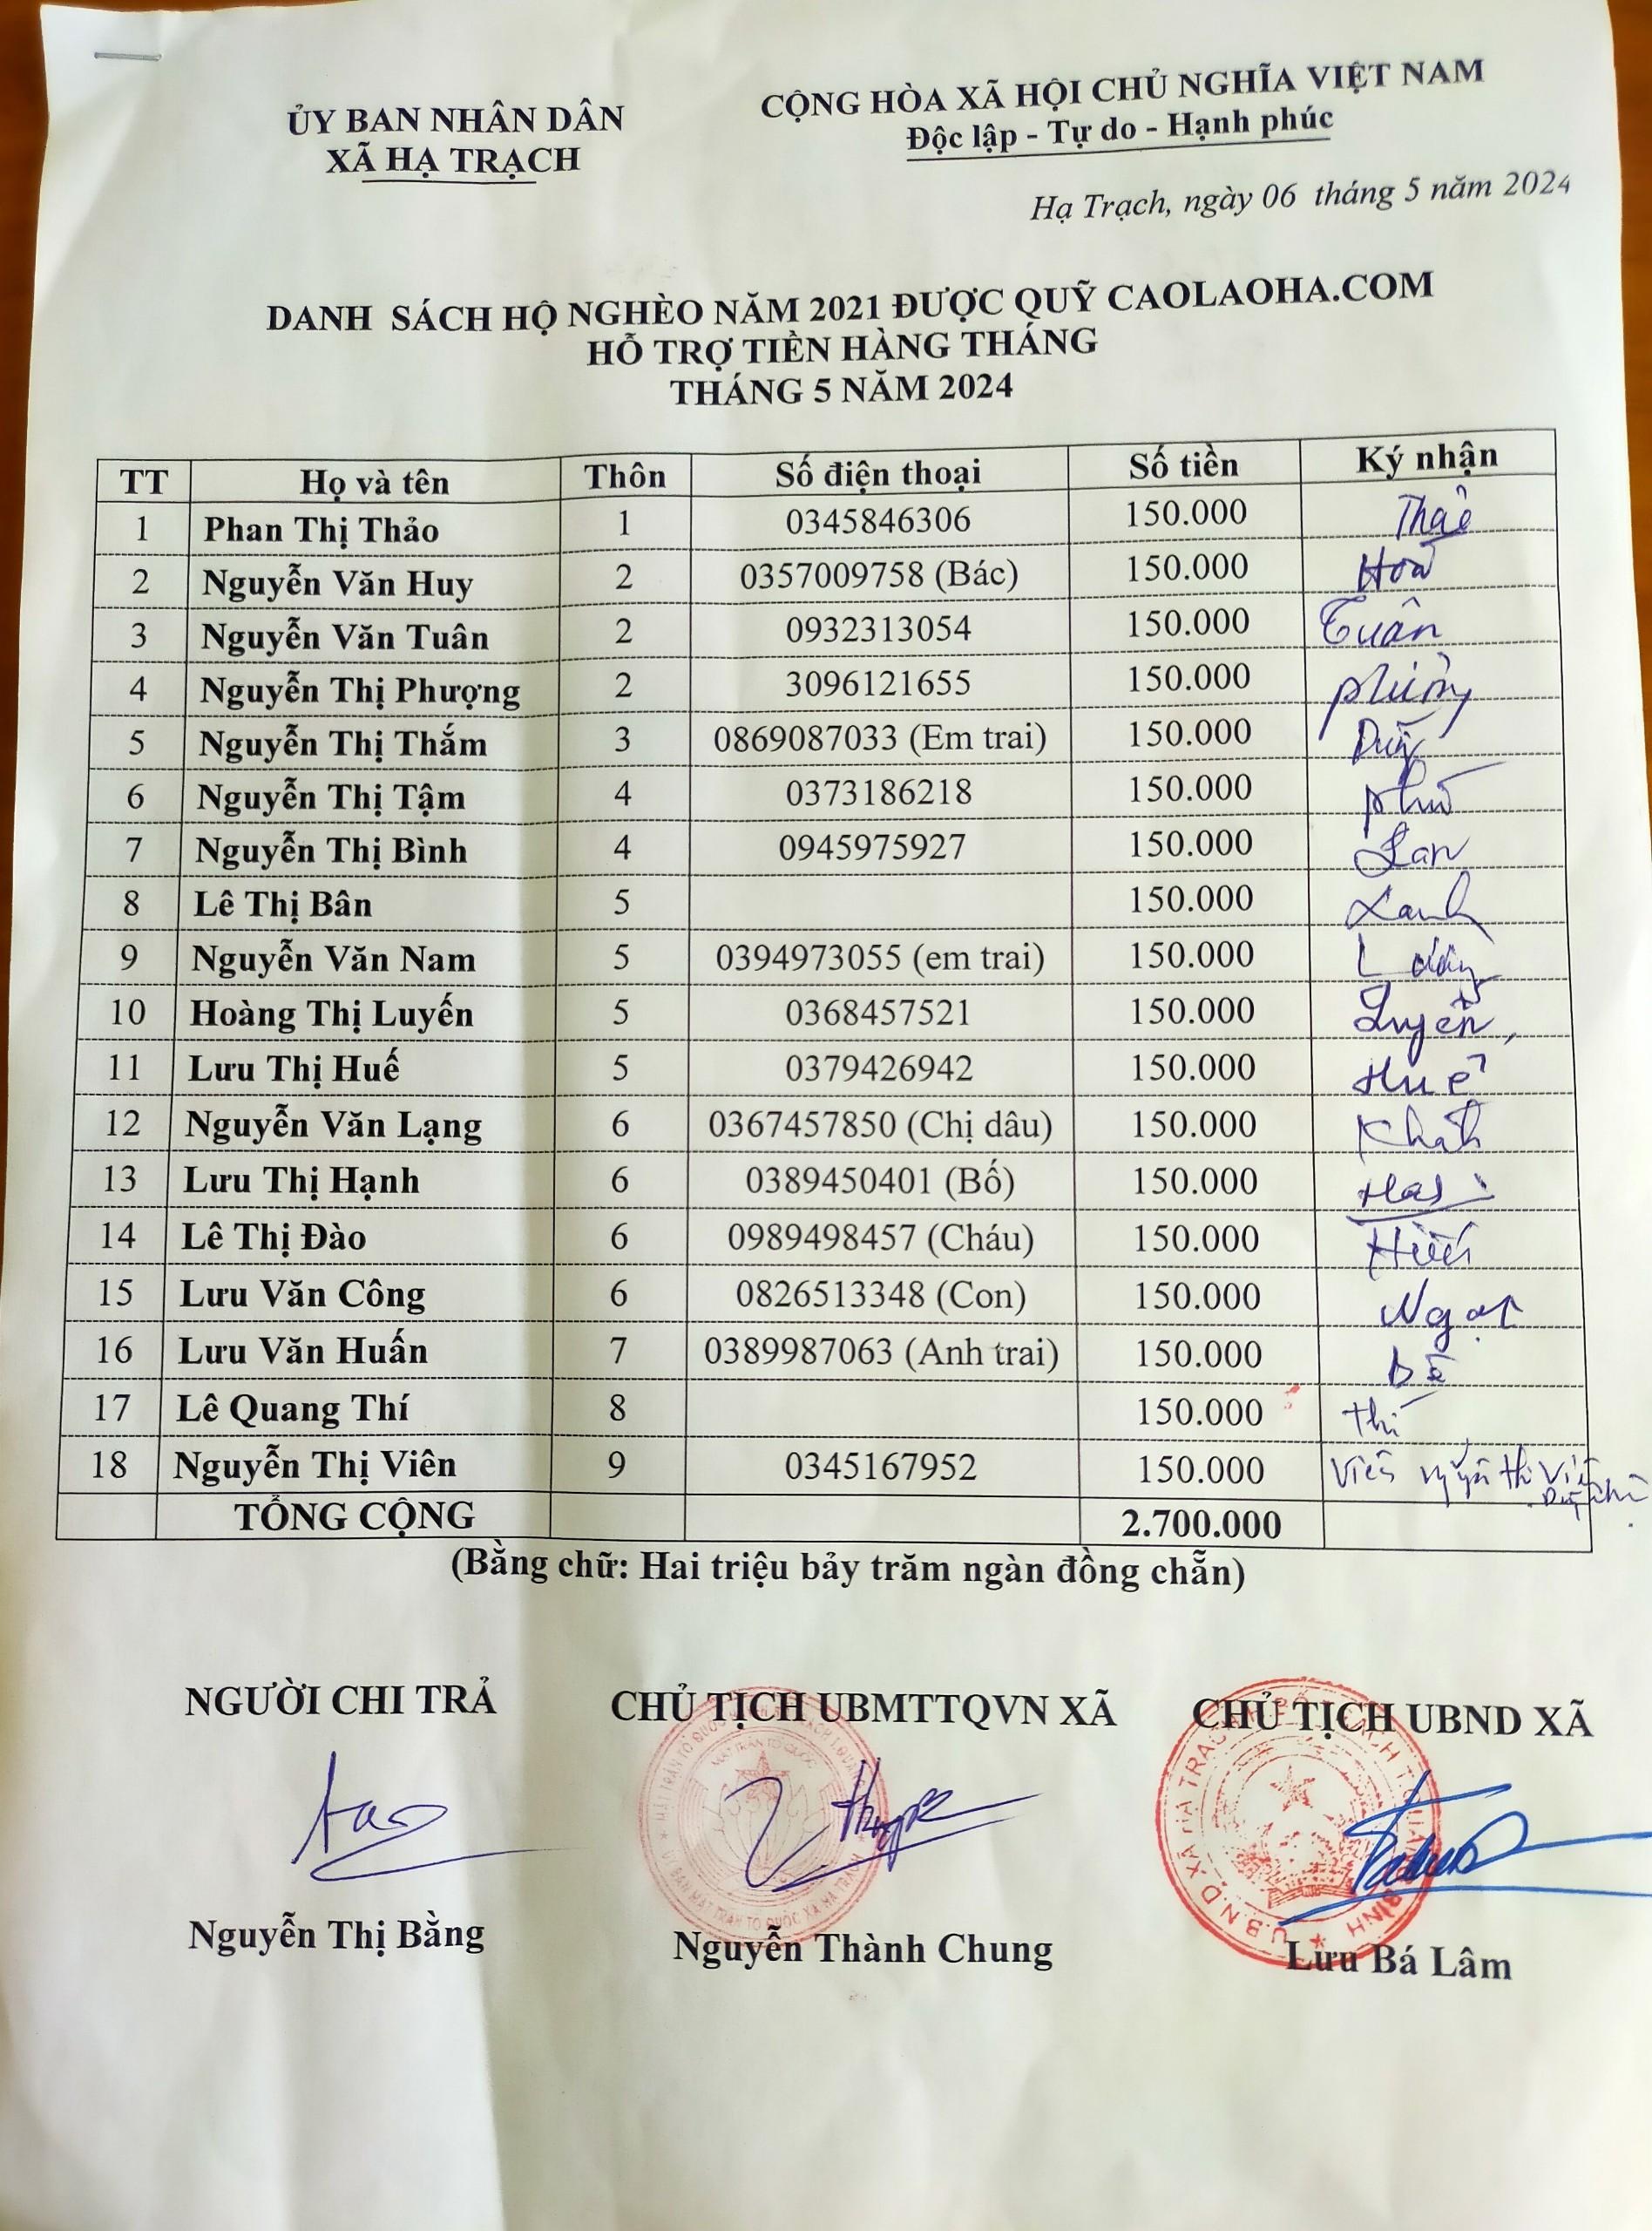 ỦY BAN NHÂN DÂN
XÃ HẠ TRẠCH
CỘNG HÒA XÃ HỘI CHỦ NGHĨA VIỆT NAM
Độc lập - Tự do - Hạnh phúc
Hạ Trạch, ngày 06 tháng 5 năm 2024
DANH SÁCH HỘ NGHÈO NĂM 2021 ĐƯỢC QUỸ CAOLAOHA.COM
HỖ TRỢ TIỀN HÀNG THÁNG
THÁNG 5 NĂM 2024
TT Họ và tên Thôn Số điện thoại Số tiền Ký nhận
1 Phan Thị Thảo 1 0345846306 150.000 Thảo
2 Nguyễn Văn Huy 2 0357009758 (Bác) 150.000
3 Nguyễn Văn Tuân 2 0932313054 150.000 Tuân
4 Nguyễn Thị Phượng 2 3096121655 150.000
5 Nguyễn Thị Thắm 3 0869087033 (Em trai) 150.000
6 Nguyễn Thị Tậm 4 0373186218 150.000
7 Nguyễn Thị Bình 4 0945975927 150.000 Lan
8 Lê Thị Bân 5 150.000 Lanh
9 Nguyễn Văn Nam 5 0394973055 (em trai) 150.000
10 Hoàng Thị Luyến 5 0368457521 150.000 Luyến
11 Lưu Thị Huế 5 0379426942 150.000 Huế
12 Nguyễn Văn Lạng 6 0367457850 (Chị dâu) 150.000
13 Lưu Thị Hạnh 6 0389450401 (Bố) 150.000
14 Lê Thị Đào 6 0989498457 (Cháu) 150.000
15 Lưu Văn Công 6 0826513348 (Con) 150.000
16 Lưu Văn Huấn 7 0389987063 (Anh trai) 150.000
17 Lê Quang Thí 8 150.000 Thí
18 Nguyễn Thị Viên 9 0345167952 150.000 Viên
TỔNG CỘNG 2.700.000
(Bằng chữ: Hai triệu bảy trăm ngàn đồng chẵn)
NGƯỜI CHI TRẢ
CHỦ TỊCH UBMTTQVN XÃ
CHỦ TỊCH UBND XÃ
Nguyễn Thị Bằng
Nguyễn Thành Chung
Lưu Bá Lâm